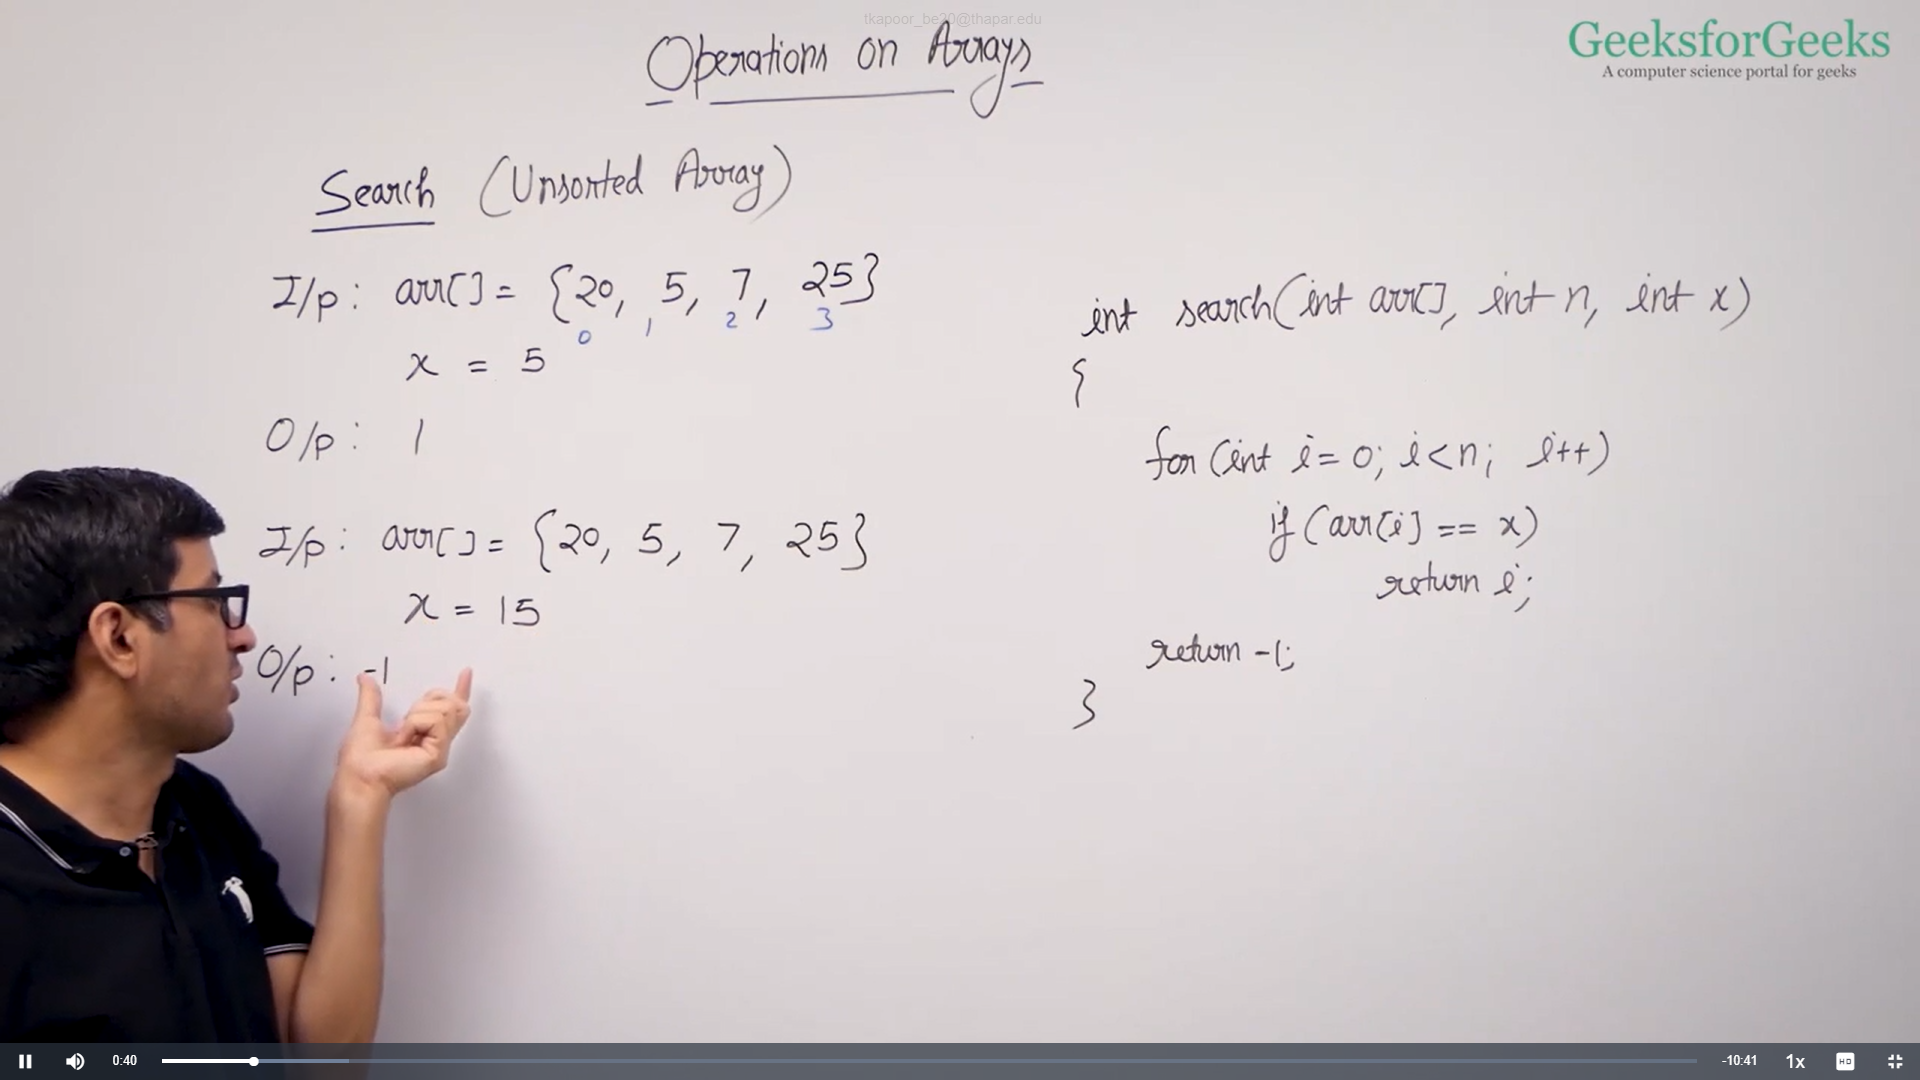 tkapoor_be20@thapar.edu
GeeksforGeeks
A computer science portal for geeks
Operations on Arrays
Search (Unsorted Array)
I/p: arr[] = {20, 5, 7, 25}
0 1 2 3
x = 5
O/p: 1
I/p: arr[] = {20, 5, 7, 25}
x = 15
O/p: -1
int search(int arr[], int n, int x)
{
for(int i=0; i<n; i++)
if(arr[i] == x)
return i;
return -1;
}
0:40
-10:41
1x
HD